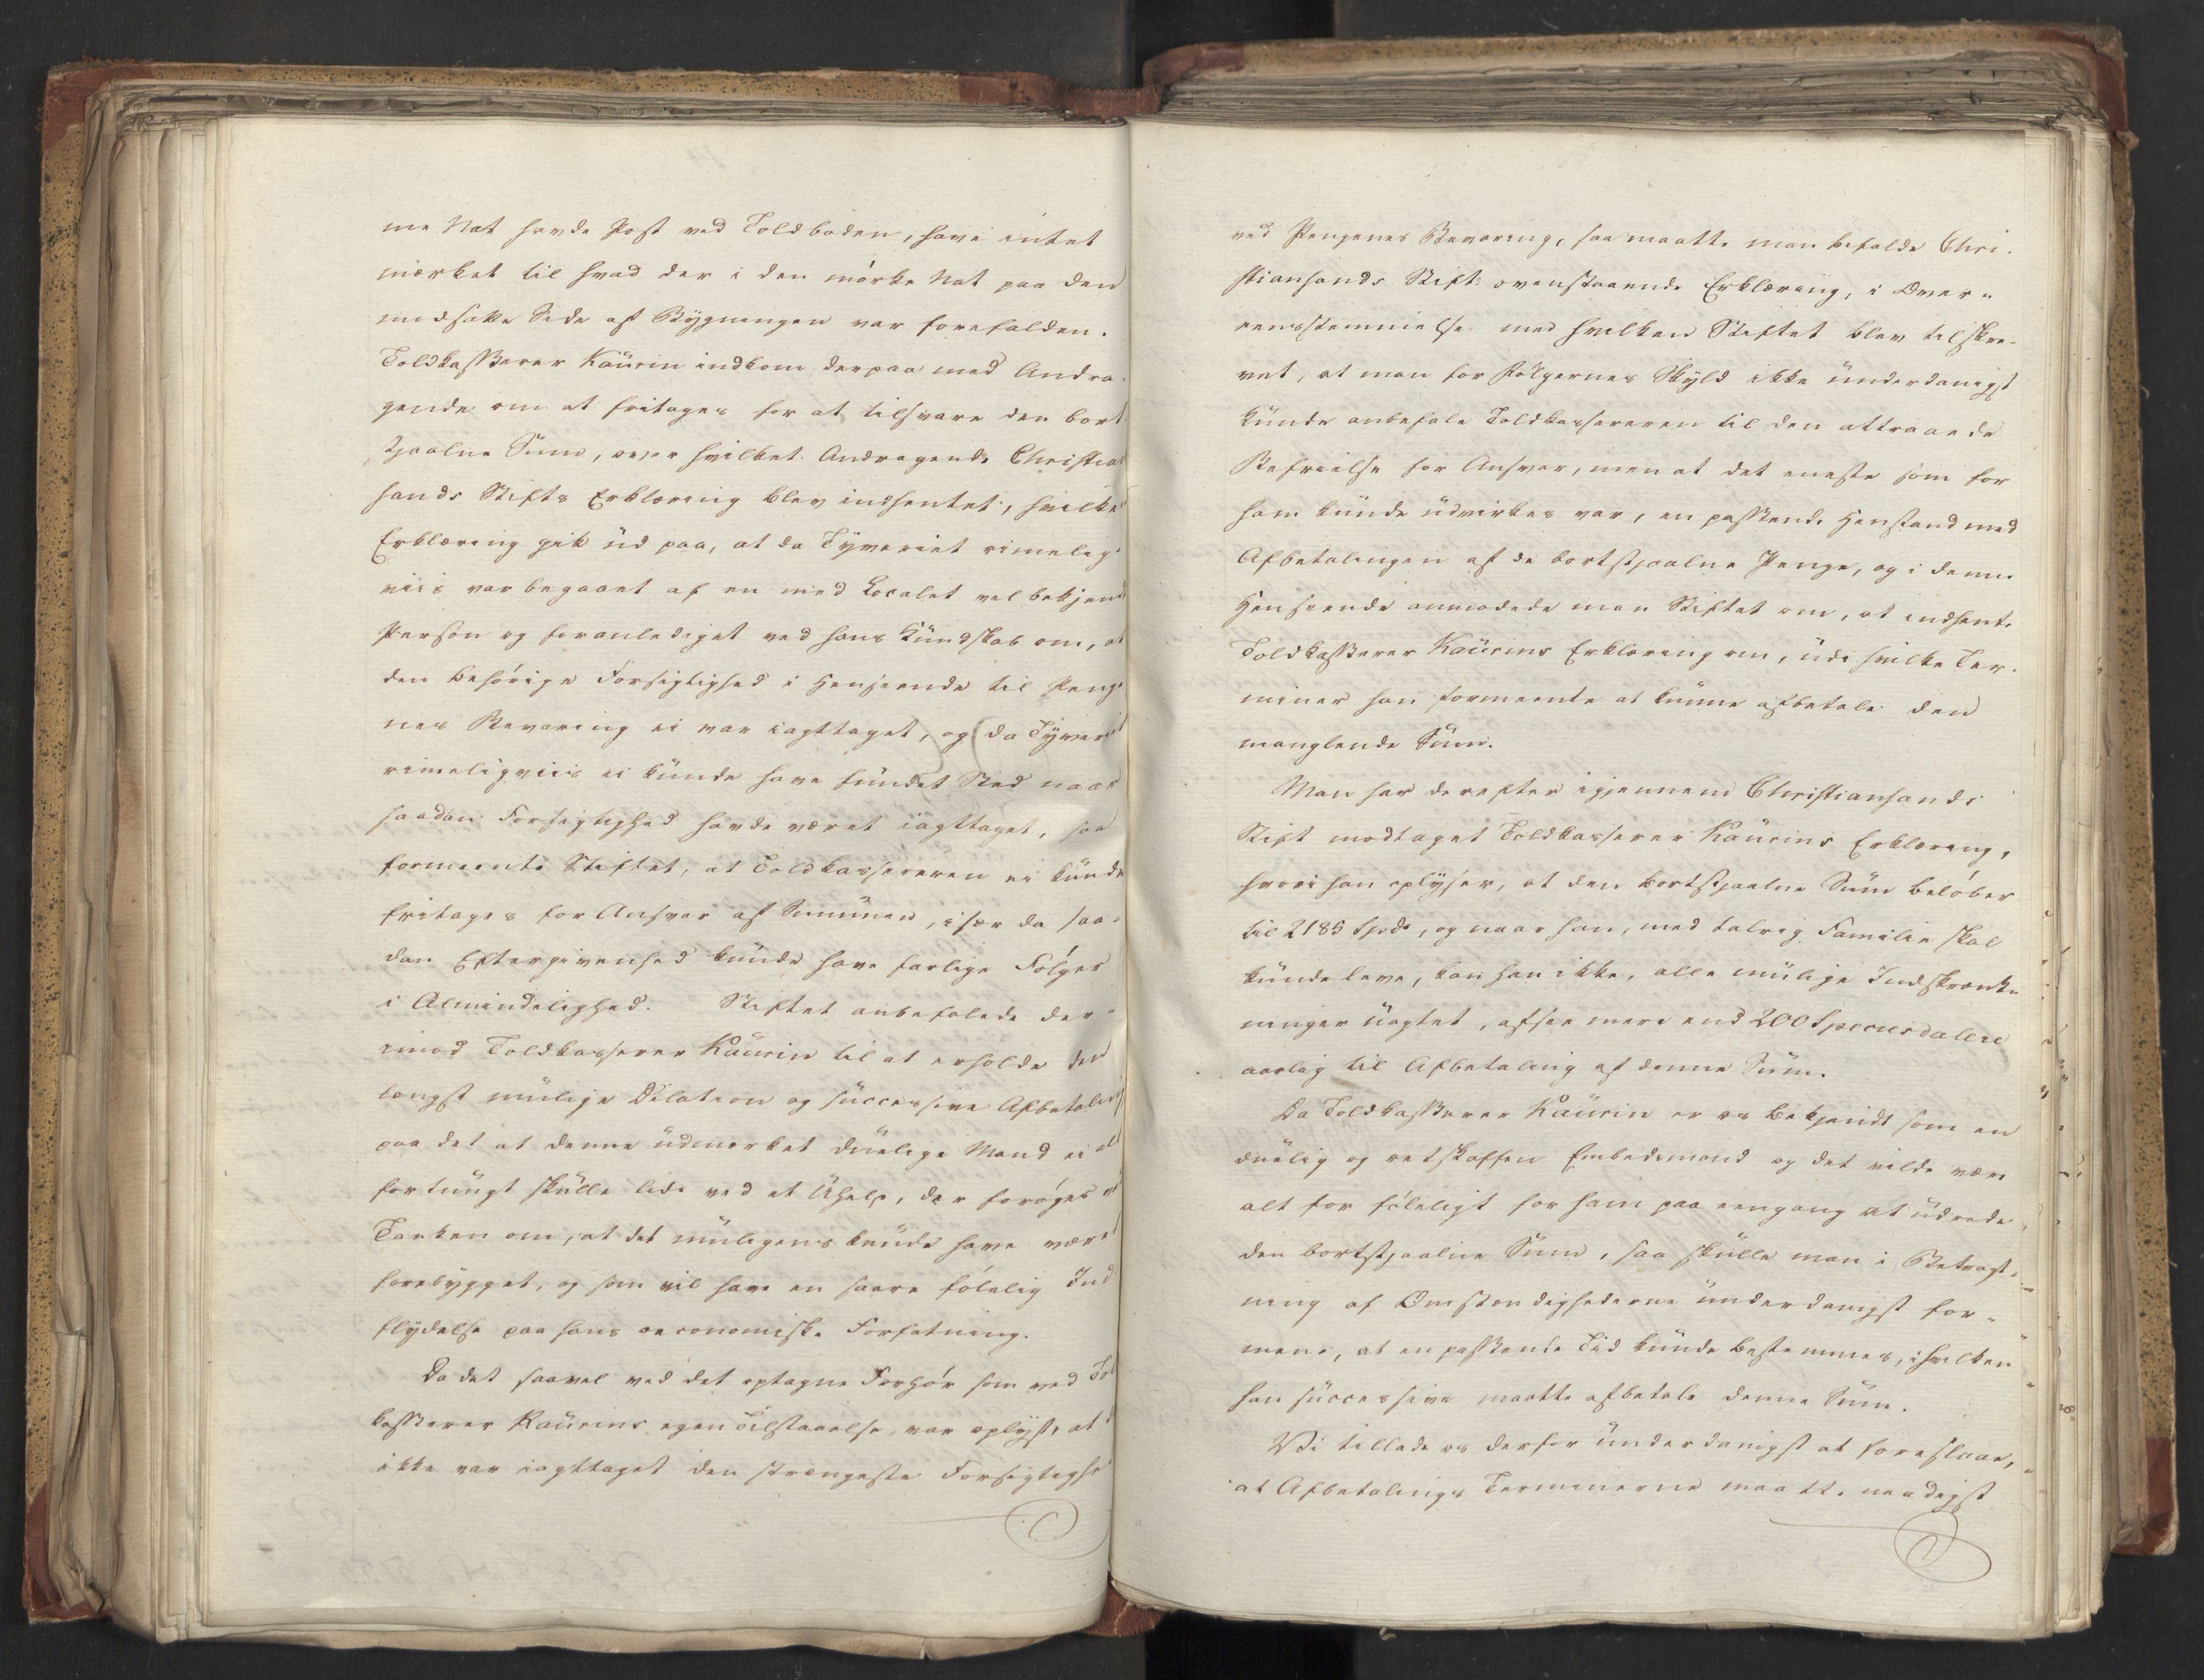 me Nat havde Post ved Toldboden, have intet
mærket til hvad der i den mørke Nat paa den
modsatte Side af Bygningen var forefalden.
Toldkasserer Kaurin indkom derpaa med Andra-
gende om at fritages for at tilsvare den bort
stjaalne Sum, over hvilket Andragende Christian
sands Stifts Erklæring blev indhentet, hvilken
Erklæring gik ud paa, at da Tyveriet rimelig-
viis var begaaet af en med Localet vel bekjendt
Person og foranlediget ved hans Kundskab om, at
den behørige Forsigtighed i Henseende til Penge
nes Bevaring ei var iagttaget, og da Tyveriet
rimeligviis ei kunde have fundet Sted naar
saadan Forsigtighed havde været iagttaget, saa
formeente Stiftet, at Toldkassereren ei kunde
fritages for Ansvar af Summen, især da saa-
dan Eftergivenhed kunde have farlige Følger
i Almindelighed. Stiftet anbefalede der-
imod Toldkasserer Kaurin til at erholde den
længst mulige Dilation og successive Afbetaling
paa det at denne udmærket duelige Mand ei alt
for tungt skulle lide ved et Uheld, der forøges ved
Tanken om, at det muligens kunde have været
forebygget, og som vil have en saare følelig Ind
flydelse paa hans oeconomiske Forfatning.
Da det saavel ved det optagne Forhør som ved Told
kasserer Kaurins egen Tilstaaelse, var oplyst, at
ikke var iagttaget den strængeste Forsigtighed
ved Pengenes Bevaring, saa maatte man bifalde Chri-
stiansands Stifts ovenstaaende Erklæring, i Over-
eensstemmelse med hvilken Stiftet blev tilskre-
vet, at man for Følgernes Skyld ikke underdanigst
kunde anbefale Toldkassereren til den attraaede
Befrielse for Ansvar, men at det eneste som for
ham kunde udvirkes var, en passende Henstand med
Afbetalingen af de bortstjaalne Penge, og i denne
Henseende anmodede man Stiftet om, at indhente
Toldkasserer Kaurins Erklæring om, udi hvilke Ter-
miner han formeente at kunne afbetale den
manglende Sum.
Man har derefter igjennem Christiansands
Stift modtaget Toldkasserer Kaurins Erklæring,
hvori han oplyser, at den bortstjaalne Sum beløber
til 2185 Spd, og naar han, med talrig Familie skal
kunde leve, kan han ikke, alle mulige Indskrænk-
ninger uagtet, afsee mere end 200 Speciesdalere
aarlig til Afbetaling af denne Sum.
Da Toldkasserer Kaurin er os bekjendt som en
duelig og retskaffen Embedsmand og det vilde være
alt for føleligt for ham paa eengang at udrede
den bortstjaalne Sum, saa skulle man i Betragt-
ning af Omstændighederne underdanigst for-
mene, at en passende Tid kunde bestemmes, i hvilken
han successive maatte afbetale denne Sum.
Vi tillade os derfor underdanigst at foreslaae,
at Afbetalings Terminerne maatte naadigst